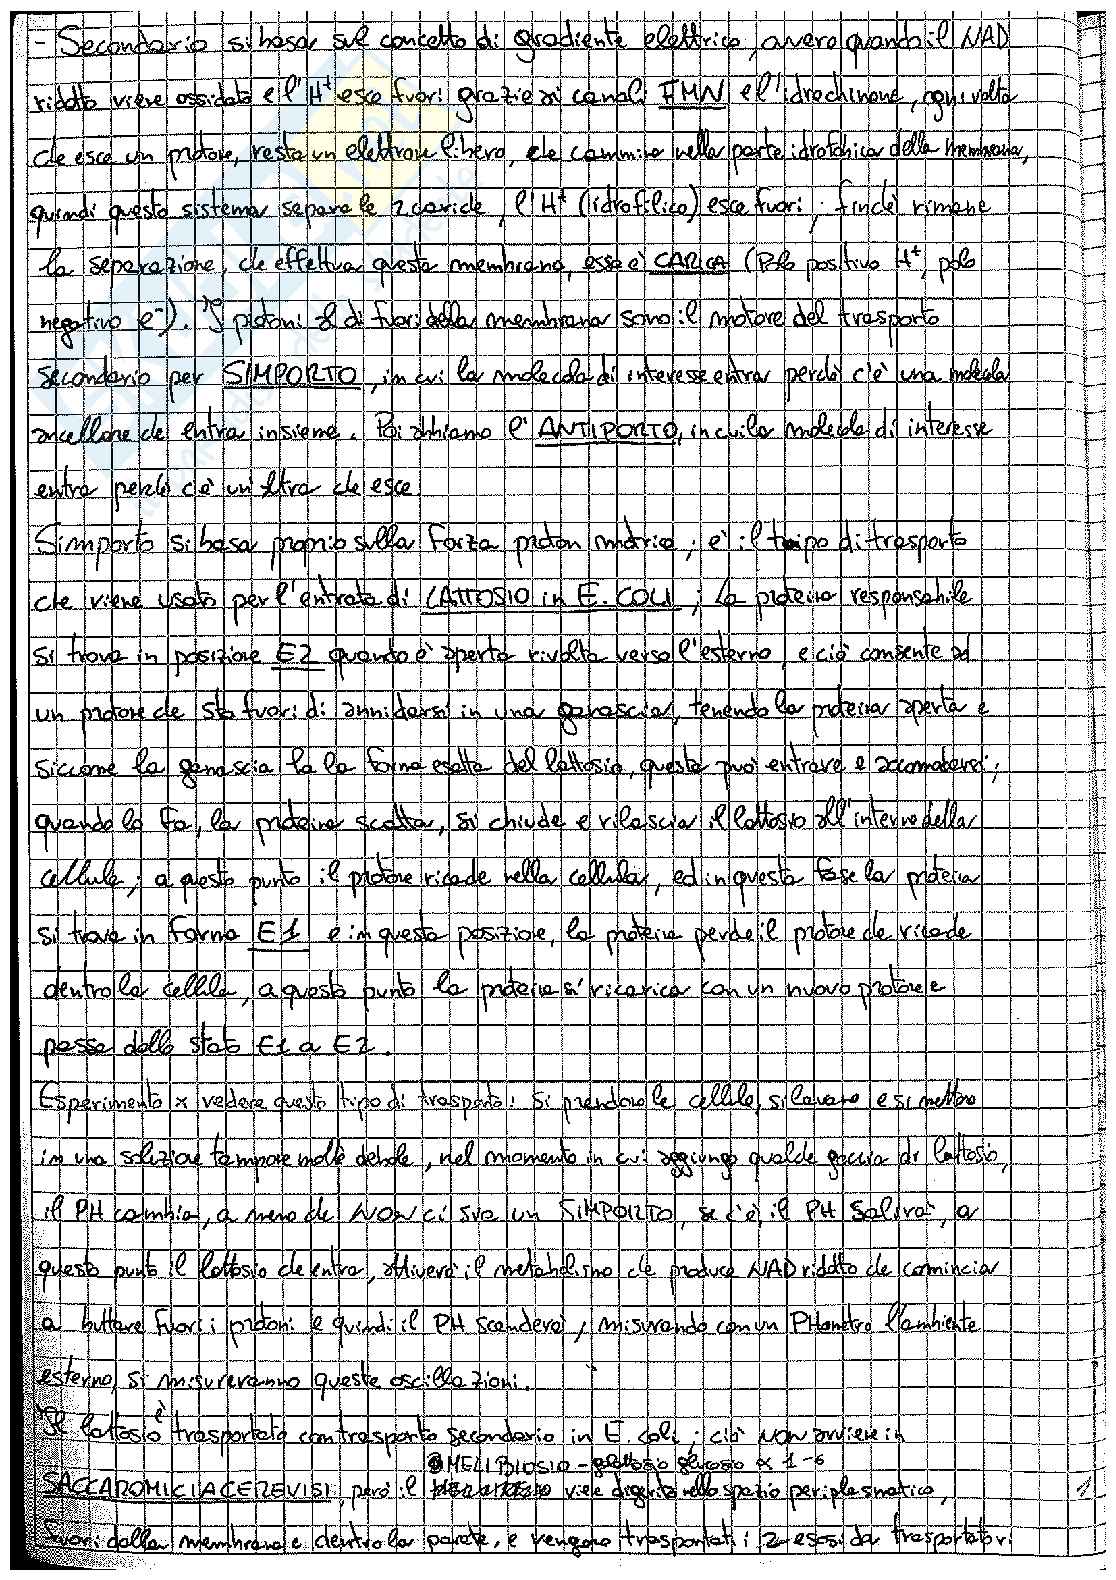 - Secondario si basa sul concetto di gradiente elettrico, ovvero quando il NAD
ridotto viene ossidato e l'H+ esce fuori grazie ai canali FMN e l'idrochinone, ogni volta
che esce un protone, resta un elettrone libero, che cammina nella parte idrofobica della membrana,
quindi questo sistema separa le 2 cariche, l'H+ (idrofilico) esce fuori; finchè rimane
la separazione, che effettua questa membrana, essa è CARICA (Polo positivo H+, polo
negativo e-). I protoni al di fuori della membrana sono il motore del trasporto
secondario per SIMPORTO, in cui la molecola di interesse entra perchè c'è una molecola
ancellare che entra insieme. Poi abbiamo l'ANTIPORTO, in cui la molecola di interesse
entra perchè c'è un'altra che esce
Simporto si basa proprio sulla forza proton motrice; è il tipo di trasporto
che viene usato per l'entrata di LATTOSIO in E. COLI; la proteina responsabile
si trova in posizione E2 quando è aperta rivolta verso l'esterno, e ciò consente ad
un protone che sta fuori di annidarsi in una ganascia, tenendo la proteina aperta e
siccome la ganascia ha la forma esatta del lattosio, questo può entrare e accomodarsi;
quando lo fa, la proteina scatta, si chiude e rilascia il lattosio all'interno della
cellula; a questo punto il protone ricade nella cellula, ed in questa fase la proteina
si trova in forma E1 e in questa posizione, la proteina perde il protone che ricade
dentro la cellula, a questo punto la proteina si ricarica con un nuovo protone e
passa dallo stato E1 a E2.
Esperimento x vedere questo tipo di trasporto: si prendono le cellule, si lavano e si mettono
in una soluzione tampone molto debole, nel momento in cui aggiungo qualche goccia di lattosio,
il PH cambia, a meno che NON ci sia un SIMPORTO, se c'è, il PH salirà, a
questo punto il lattosio che entra, attiverà il metabolismo che produce NAD ridotto che comincia
a buttare fuori i protoni e quindi il PH scenderà; misurando con un PHametro l'ambiente
esterno, si misureranno queste oscillazioni.
Il lattosio è trasportato con trasporto secondario in E. coli; ciò NON avviene in
MELIBIOSIO - galattosio glucosio α 1-6
SACCAROMICIACEREVISI, però il viene digerito nello spazio periplasmatico,
fuori dalla membrana e dentro la parete, e vengono trasportati i 2 esosi da trasportatori
1